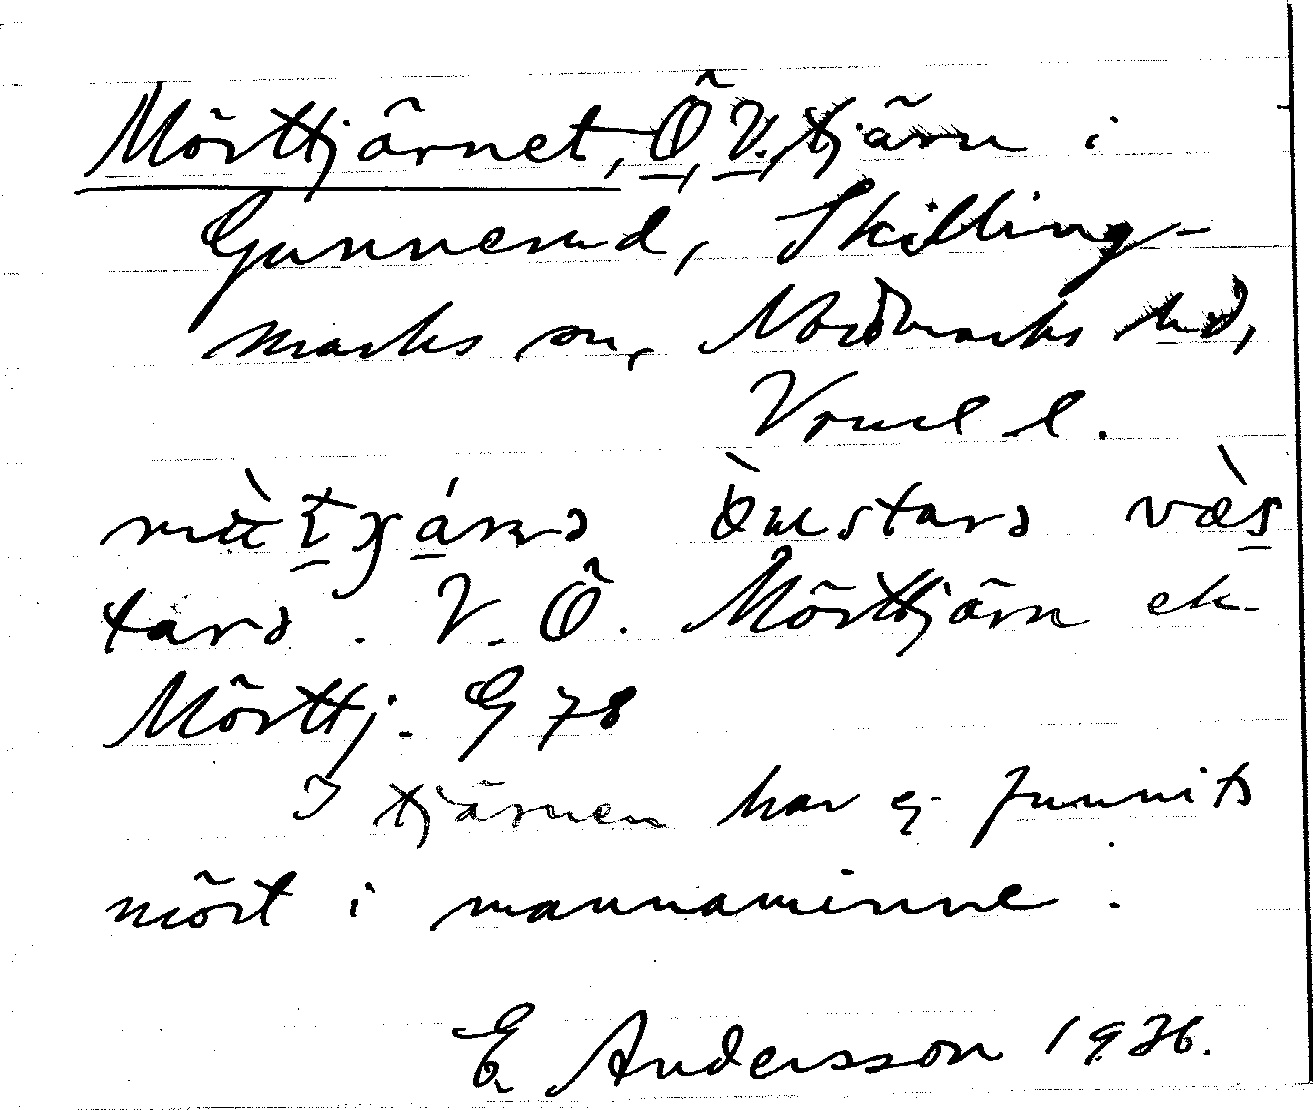 Mörttjärnet, Ö, V, tjärn i
Gunnerud, Skilling-
marks sn, Nordmarks hd,
Vrml l.
V. Ö. Mörttjärn ek
Mörttj. G 78
I tjärnen har ej funnits
mört i mannaminne.
E Andersson 1936.